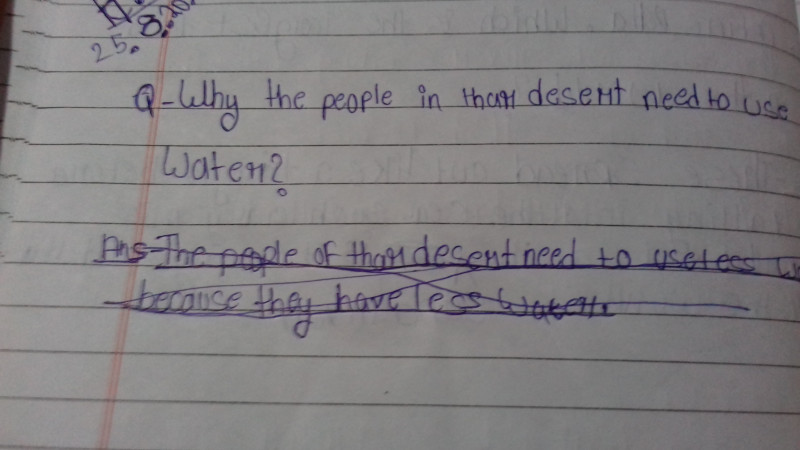 25.8.20
Q-Why the people in thar desert need to use
Water?
Ans-The people of thar desert need to use less
because they have less water.